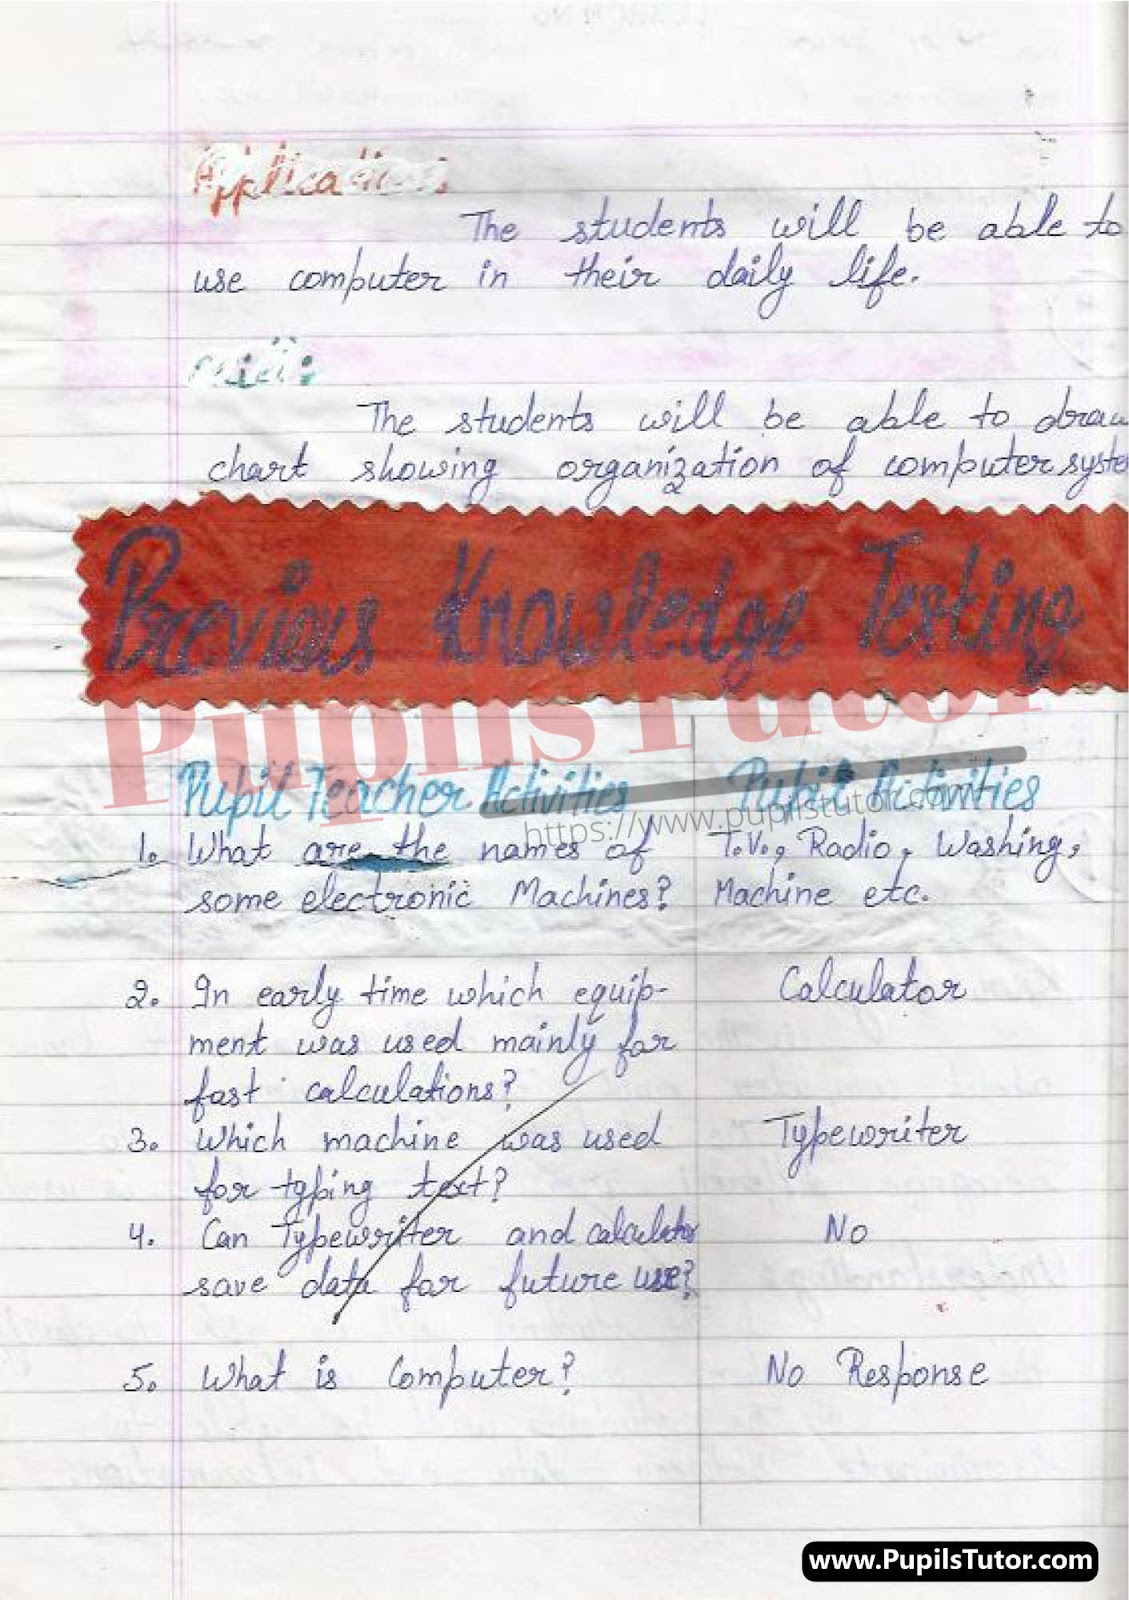 Application:
The students will be able to
use computer in their daily life.
Skill:
The students will be able to draw
chart showing organization of computer syste
Previous Knowledge Testing
PupilsTutor
https://www.pupilstutor.com
Pupil Teacher Activities Pupil Activities
1. What are the names of T.V., Radio, Washing,
some electronic Machines? Machine etc.
2. In early time which equip- Calculator
ment was used mainly for
fast calculations?
3. Which machine was used Typewriter
for typing text?
4. Can Typewriter and calculator No
save data for future use?
5. What is Computer? No Response
www.PupilsTutor.com